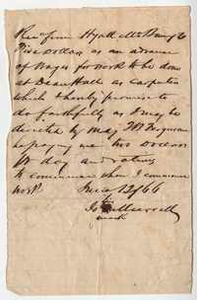 Rec'd from Hyatt McBurney &
Five Dollars as an advance
of Wages for Work to be done
at Dean Hall as carpenter
which I hereby promise to
do faithfully as I may be
directed by Maj T B Ferguson
he paying me two Dollars
pr day and rations
to commence when I commence
work. 12/66
Jos
mark